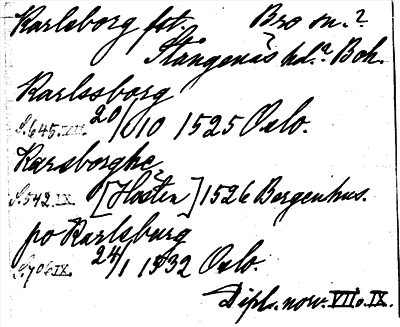 Karlsborg fst. Bro sn.?
Stångenäs hd.? Boh.
Karlssborg
S.645.VII. 20/10 1525 Oslo.
Karsborghe
S.542.IX [Hösten] 1526 Bergenhus.
po Karlsburg
S.706.IX. 24/1 1532 Oslo.
Dipl. norv. VII o. IX.